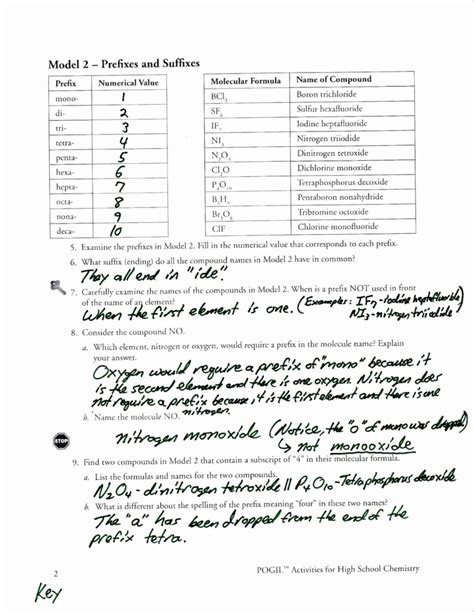 Model 2 – Prefixes and Suffixes
Prefix Numerical Value
mono- 1
di- 2
tri- 3
tetra- 4
penta- 5
hexa- 6
hepta- 7
octa- 8
nona- 9
deca- 10
Molecular Formula Name of Compound
BCl3 Boron trichloride
SF6 Sulfur hexafluoride
IF7 Iodine heptafluoride
NI3 Nitrogen triiodide
N2O4 Dinitrogen tetroxide
Cl2O Dichlorine monoxide
P4O10 Tetraphosphorus decoxide
B5H9 Pentaboron nonahydride
Br3O8 Tribromine octoxide
ClF Chlorine monofluoride
5. Examine the prefixes in Model 2. Fill in the numerical value that corresponds to each prefix.
6. What suffix (ending) do all the compound names in Model 2 have in common?
They all end in "ide"
7. Carefully examine the names of the compounds in Model 2. When is a prefix NOT used in front
of the name of an element?
(Examples: IF7 - iodine heptafluoride
When the first element is one.
NI3 - nitrogen triiodide
8. Consider the compound NO.
a. Which element, nitrogen or oxygen, would require a prefix in the molecule name? Explain
your answer.
Oxygen would require a prefix of "mono" because it
is the second element and there is one oxygen. Nitrogen does
not require a prefix because it is the first element and there is one
nitrogen.
b. Name the molecule NO.
STOP
nitrogen monoxide (Notice, the "o" of mono was dropped)
↳ not monooxide
9. Find two compounds in Model 2 that contain a subscript of "4" in their molecular formula.
a. List the formulas and names for the two compounds.
N2O4 - dinitrogen tetroxide // P4O10 - Tetraphosphorus decoxide
b. What is different about the spelling of the prefix meaning "four" in these two names?
The "a" has been dropped from the end of the
prefix tetra.
2 POGIL™ Activities for High School Chemistry
Key